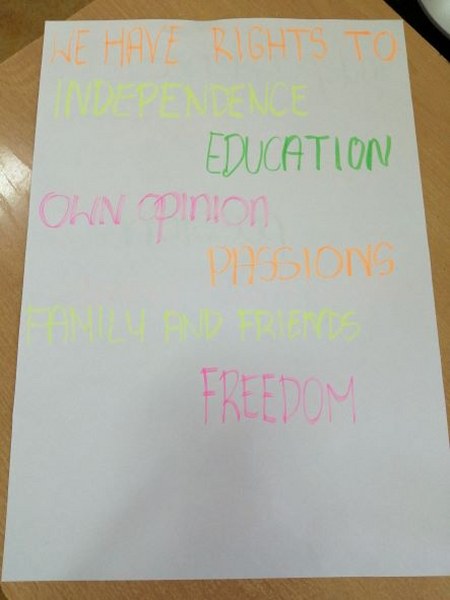 WE HAVE RIGHTS TO
INDEPENDENCE
EDUCATION
OWN OPINION
PASSIONS
FAMILY AND FRIENDS
FREEDOM